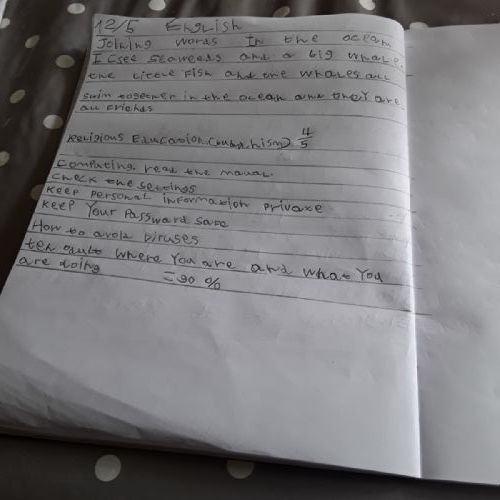 12/5 English
Joining words In the ocean
I Csee seaweeds and a big whale
the little fish and the whales all
swim together in the ocean and they are
all friends
Religious Education (buddhism) 4/5
Computing. read the manual
check the settings
keep personal information private
keep Your Password safe
How to avoid viruses
tell adults where You are and what You
are doing =90%